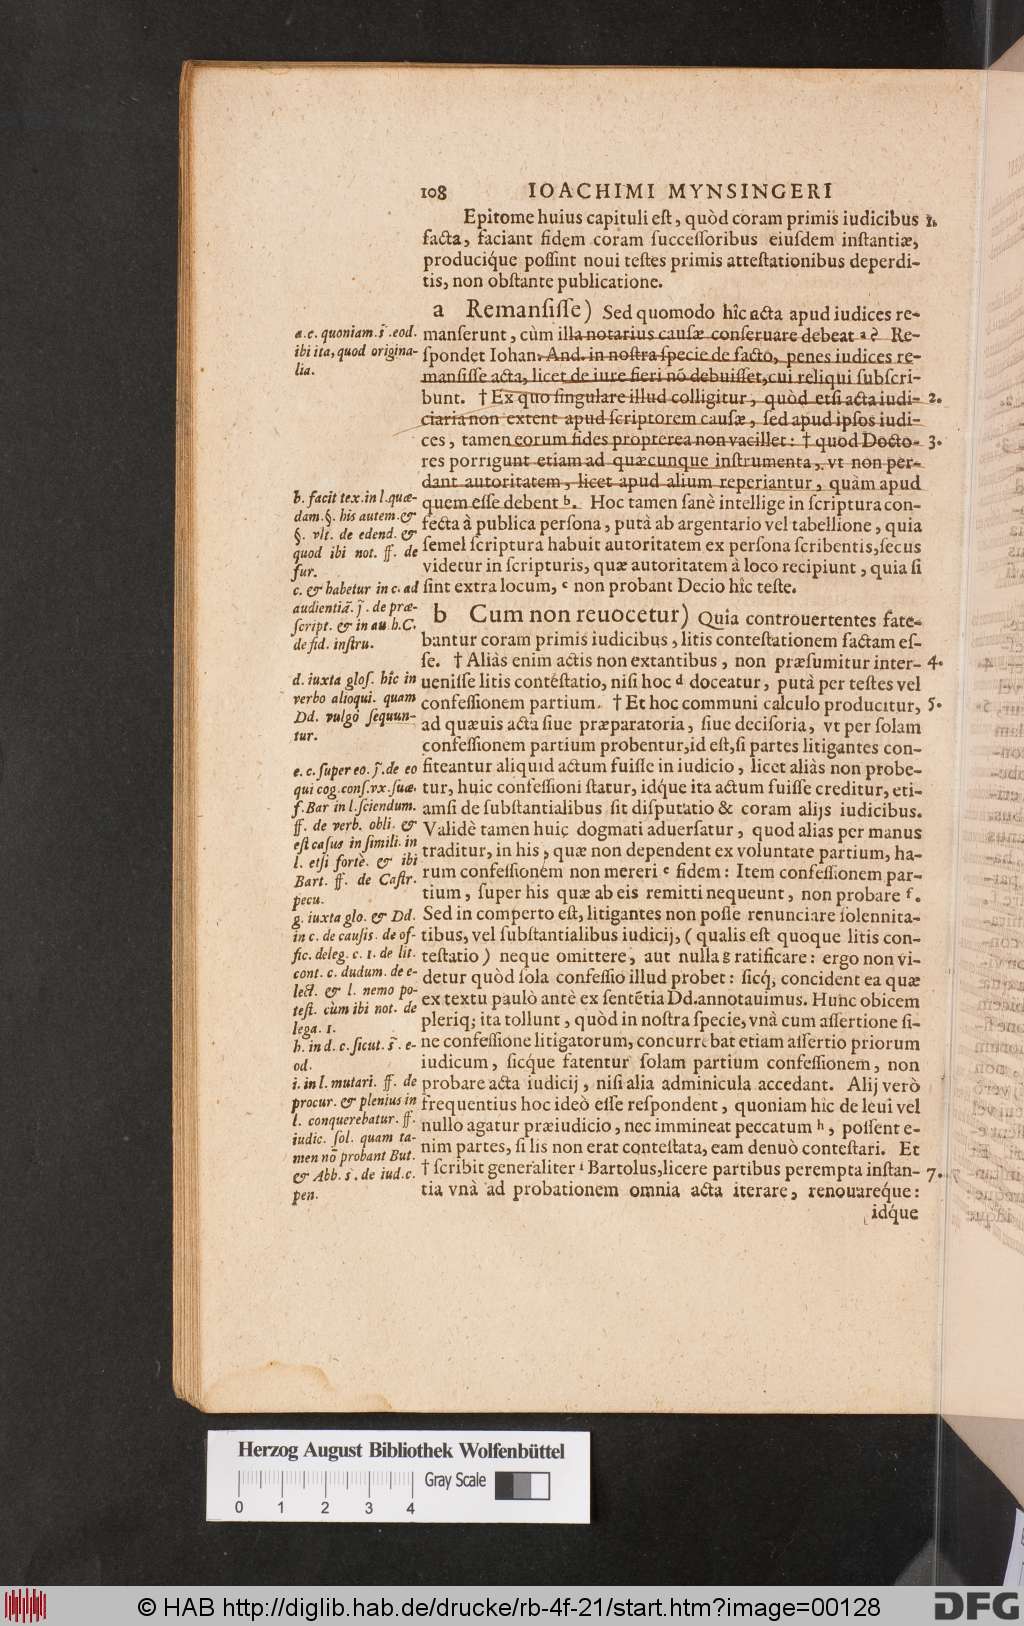 108 IOACHIMI MYNSINGERI
Epitome huius capituli est, quòd coram primis iudicibus 1.
facta, faciant fidem coram successoribus eiusdem instantiæ,
producíque possint noui testes primis attestationibus deperdi-
tis, non obstante publicatione.
a Remansisse) Sed quomodo hîc acta apud iudices re-
manserunt, cùm illa notarius causæ conseruare debeat a? Re-
spondet Iohan. And. in nostra specie de facto, penes iudices re-
mansisse acta, licet de iure fieri nõ debuisset, cui reliqui subscri-
bunt. † Ex quo singulare illud colligitur, quòd etsi acta iudi- 2.
ciaria non extent apud scriptorem causæ, sed apud ipsos iudi-
ces, tamen eorum fides propterea non vacillet: † quod Docto- 3.
res porrigunt etiam ad quæcunque instrumenta, vt non per-
dant autoritatem, licet apud alium reperiantur, quàm apud
quem esse debent b. Hoc tamen sanè intellige in scriptura con-
fecta à publica persona, putà ab argentario vel tabellione, quia
semel scriptura habuit autoritatem ex persona scribentis, secus
videtur in scripturis, quæ autoritatem à loco recipiunt, quia si
sint extra locum, c non probant Decio hîc teste.
b Cum non reuocetur) Quia controuertentes fate-
bantur coram primis iudicibus, litis contestationem factam es-
se. † Aliàs enim actis non extantibus, non præsumitur inter- 4.
uenisse litis contéstatio, nisi hoc d doceatur, putà per testes vel
confessionem partium. † Et hoc communi calculo producitur, 5.
ad quæuis acta siue præparatoria, siue decisoria, vt per solam
confessionem partium probentur, id est, si partes litigantes con-
fiteantur aliquid actum fuisse in iudicio, licet aliàs non probe-
tur, huic confessioni statur, idq́ue ita actum fuisse creditur, eti-
amsi de substantialibus sit disputatio & coram alijs iudicibus.
Validè tamen huic dogmati aduersatur, quod alias per manus
traditur, in his, quæ non dependent ex voluntate partium, ha-
rum confessionem non mereri e fidem: Item confessionem par-
tium, super his quæ ab eis remitti nequeunt, non probare f.
Sed in comperto est, litigantes non posse renunciare solennita-
tibus, vel substantialibus iudicij, (qualis est quoque litis con-
testatio) neque omittere, aut nulla g ratificare: ergo non vi-
detur quòd sola confessio illud probet: sicq́; concident ea quæ
ex textu paulò antè ex sentẽtia Dd. annotauimus. Hunc obicem
pleriq; ita tollunt, quòd in nostra specie, vnà cum assertione si-
ne confessione litigatorum, concurrebat etiam assertio priorum
iudicum, sicq́ue fatentur solam partium confessionem, non
probare acta iudicij, nisi alia adminicula accedant. Alij verò
frequentius hoc ideò esse respondent, quoniam hic de leui vel
nullo agatur præiudicio, nec immineat peccatum h, possent e-
nim partes, si lis non erat contestata, eam denuò contestari. Et
† scribit generaliter i Bartolus, licere partibus perempta instan- 7.
tia vnà ad probationem omnia acta iterare, renouareq́ue:
idq́ue
a. c. quoniam. §. eod.
ibi ita, quod origina-
lia.
b. facit tex. in l. quæ-
dam. §. his autem. &
§. vlt. de edend. &
quod ibi not. ff. de
fur.
c. & habetur in c. ad
audientiã. j̃. de præ-
script. & in au. h. C.
de fid. instru.
d. iuxta glos. hîc in
verbo alioqui. quam
Dd. vulgò sequun-
tur.
e. c. super eo. j̃. de eo
qui cog. cons. vx. suæ.
f. Bar in l. sciendum.
ff. de verb. obli. &
est casus in simili. in
l. etsi fortè. & ibi
Bart. ff. de Castr.
pecu.
g. iuxta glo. & Dd.
in c. de causis. de of-
fic. deleg. c. 1. de lit.
cont. c. dudum. de e-
lect. & l. nemo po-
test. cùm ibi not. de
lega. 1.
h. in d. c. sicut. s̃. e-
od.
i. in l. mutari. ff. de
procur. & plenius in
l. conquerebatur. ff.
iudic. sol. quam ta-
men nõ probant But.
& Abb. s̃. de iud. c.
pen.
Herzog August Bibliothek Wolfenbüttel
0 1 2 3 4 Gray Scale
© HAB http://diglib.hab.de/drucke/rb-4f-21/start.htm?image=00128
DFG